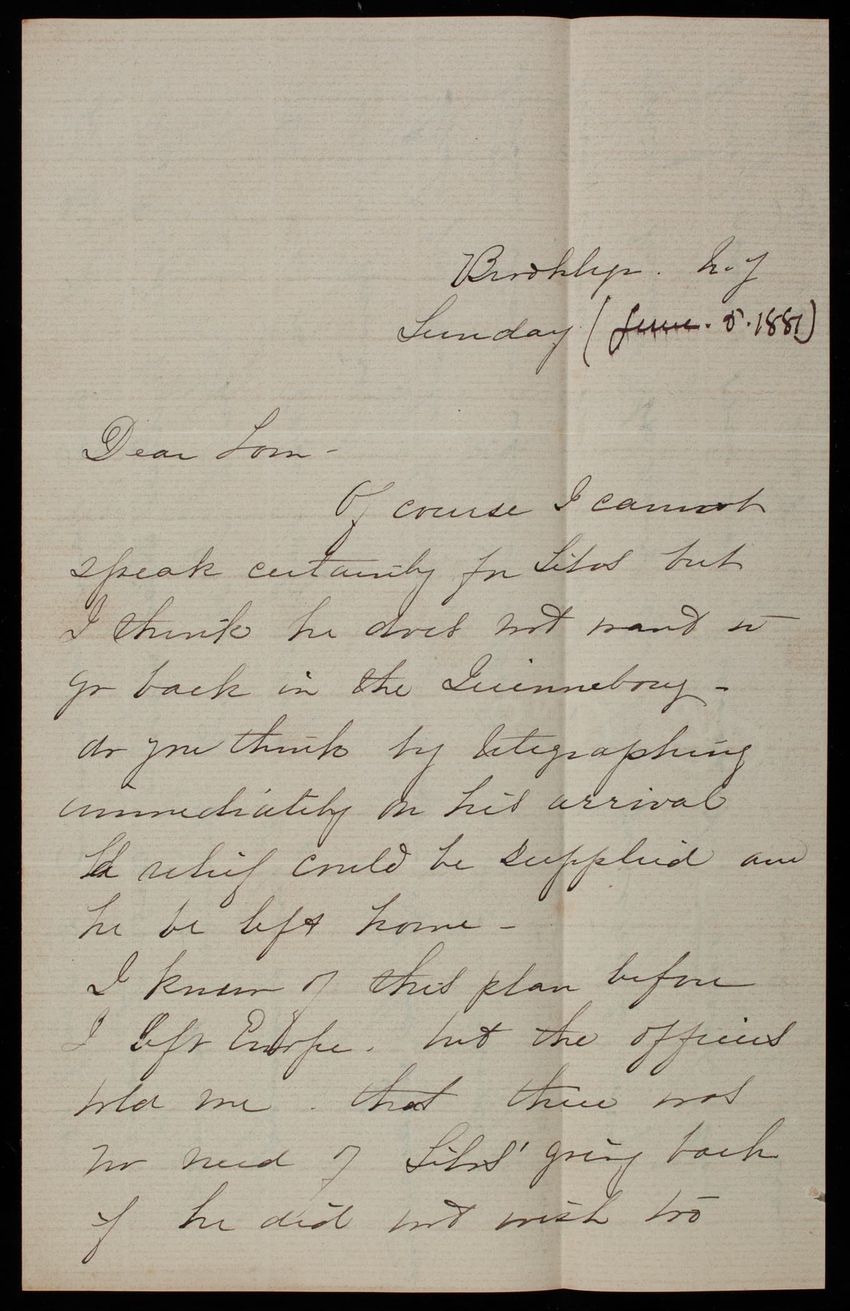 Brooklyn. N.Y
Sunday (June. 5. 1881)
Dear Tom -
Of course I cannot
speak certainly for Silas but
I think he does not want to
go back in the Quinnebaug -
do you think by telegraphing
immediately on his arrival
relief could be supplied and
he be left home -
I knew of this plan before
I left Europe. but the officers
told me. that there was
no need of Silas' going back
if he did not wish to